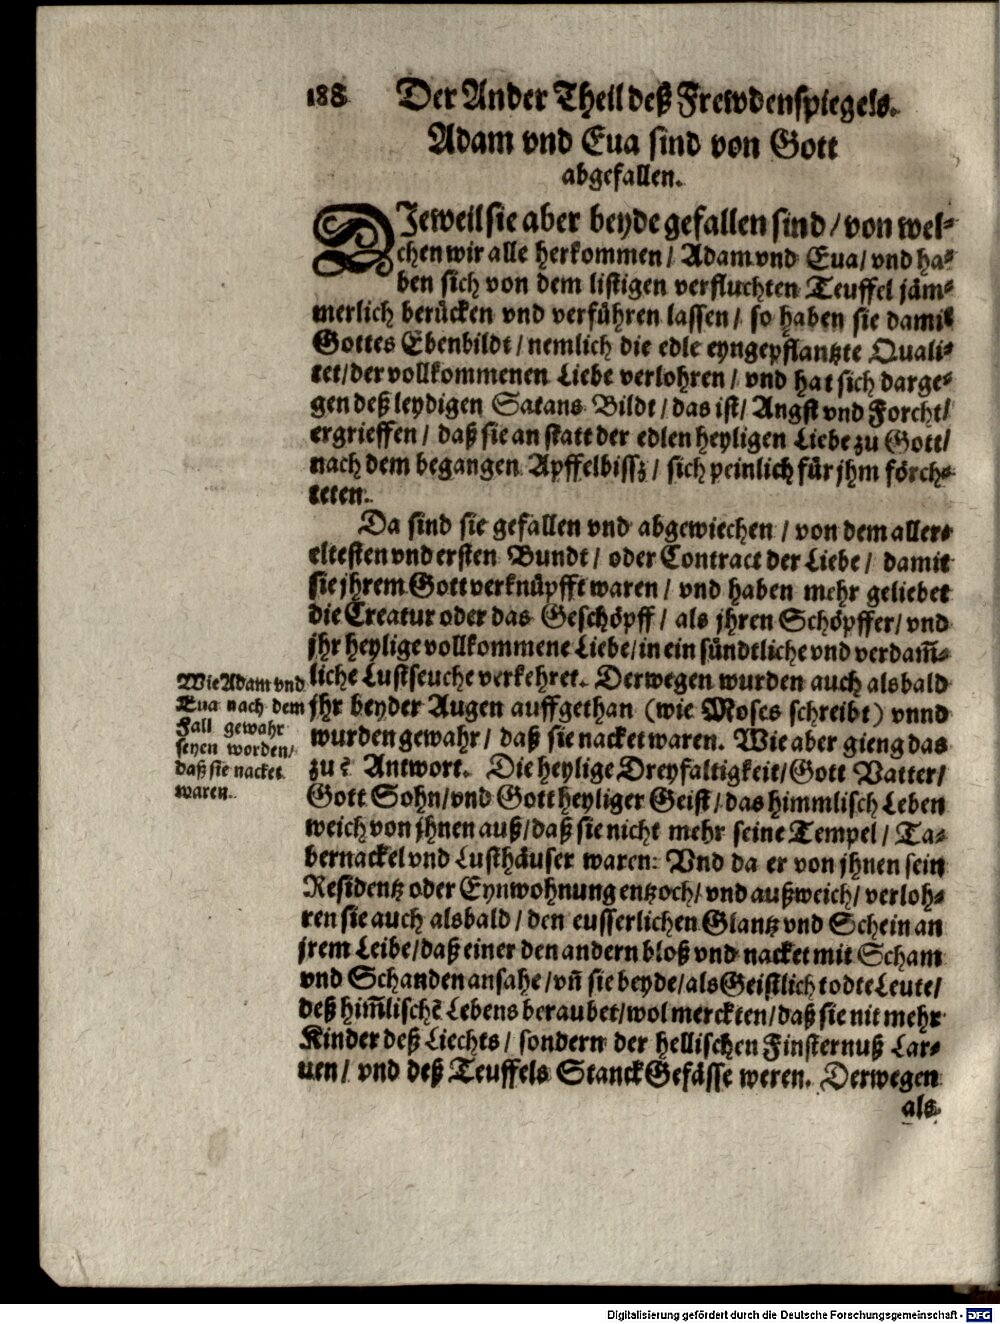 188 Der Ander Theil deß Frewdenspiegels.
Adam vnd Eua sind von Gott
abgefallen.
DIeweil sie aber beyde gefallen sind / von wel-
chen wir alle herkommen / Adam vnd Eua / vnd ha-
ben sich von dem listigen verfluchten Teuffel jäm-
merlich berücken vnd verführen lassen / so haben sie damit
Gottes Ebenbildt / nemlich die edle eyngepflantzte Quali-
tet / der vollkommenen Liebe verlohren / vnd hat sich darge-
gen deß leydigen Satans Bildt / das ist / Angst vnd Forcht /
ergrieffen / daß sie an statt der edlen heyligen Liebe zu Gott /
nach dem begangen Apffelbissz / sich peinlich für jhm förch-
teten.
Da sind sie gefallen vnd abgewiechen / von dem aller-
eltesten vnd ersten Bundt / oder Contract der Liebe / damit
sie jhrem Gott verknüpfft waren / vnd haben mehr geliebet
die Creatur oder das Geschöpff / als jhren Schöpffer / vnd
jhr heylige vollkommene Liebe / in ein sündtliche vnd verdam̄-
liche Lustseuche verkehret. Derwegen wurden auch alsbald
jhr beyder Augen auffgethan (wie Moses schreibt) vnnd
wurden gewahr / daß sie nacket waren. Wie aber gieng das
zu? Antwort. Die heylige Dreyfaltigkeit / Gott Vatter /
Gott Sohn / vnd Gott heyliger Geist / das himmlisch Leben
weich von jhnen auß / daß sie nicht mehr seine Tempel / Ta-
bernackel vnd Lusthäuser waren: Vnd da er von jhnen sein
Residentz oder Eynwohnung entzoch / vnd außweich / verloh-
ren sie auch alsbald / den eusserlichen Glantz vnd Schein an
jrem Leibe / daß einer den andern bloß vnd nacket mit Scham
vnd Schanden ansahe / vn̄ sie beyde / als Geistlich todte Leute /
deß him̄lischē Lebens beraubet / wol merckten / daß sie nit mehr
Kinder deß Liechts / sondern der hellischen Finsternuß Lar-
uen / vnd deß Teuffels Stanck Gefässe weren. Derwegen
als
Wie Adam vnd
Eua nach dem
Fall gewahr
seyen worden /
daß sie nacket
waren.
Digitalisierung gefördert durch die Deutsche Forschungsgemeinschaft - DFG